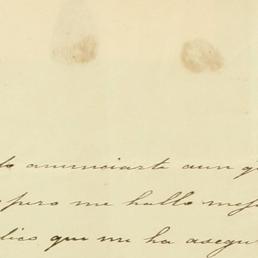 do anunciarte aun q
pero me hallo mejo
dico que me ha asegu